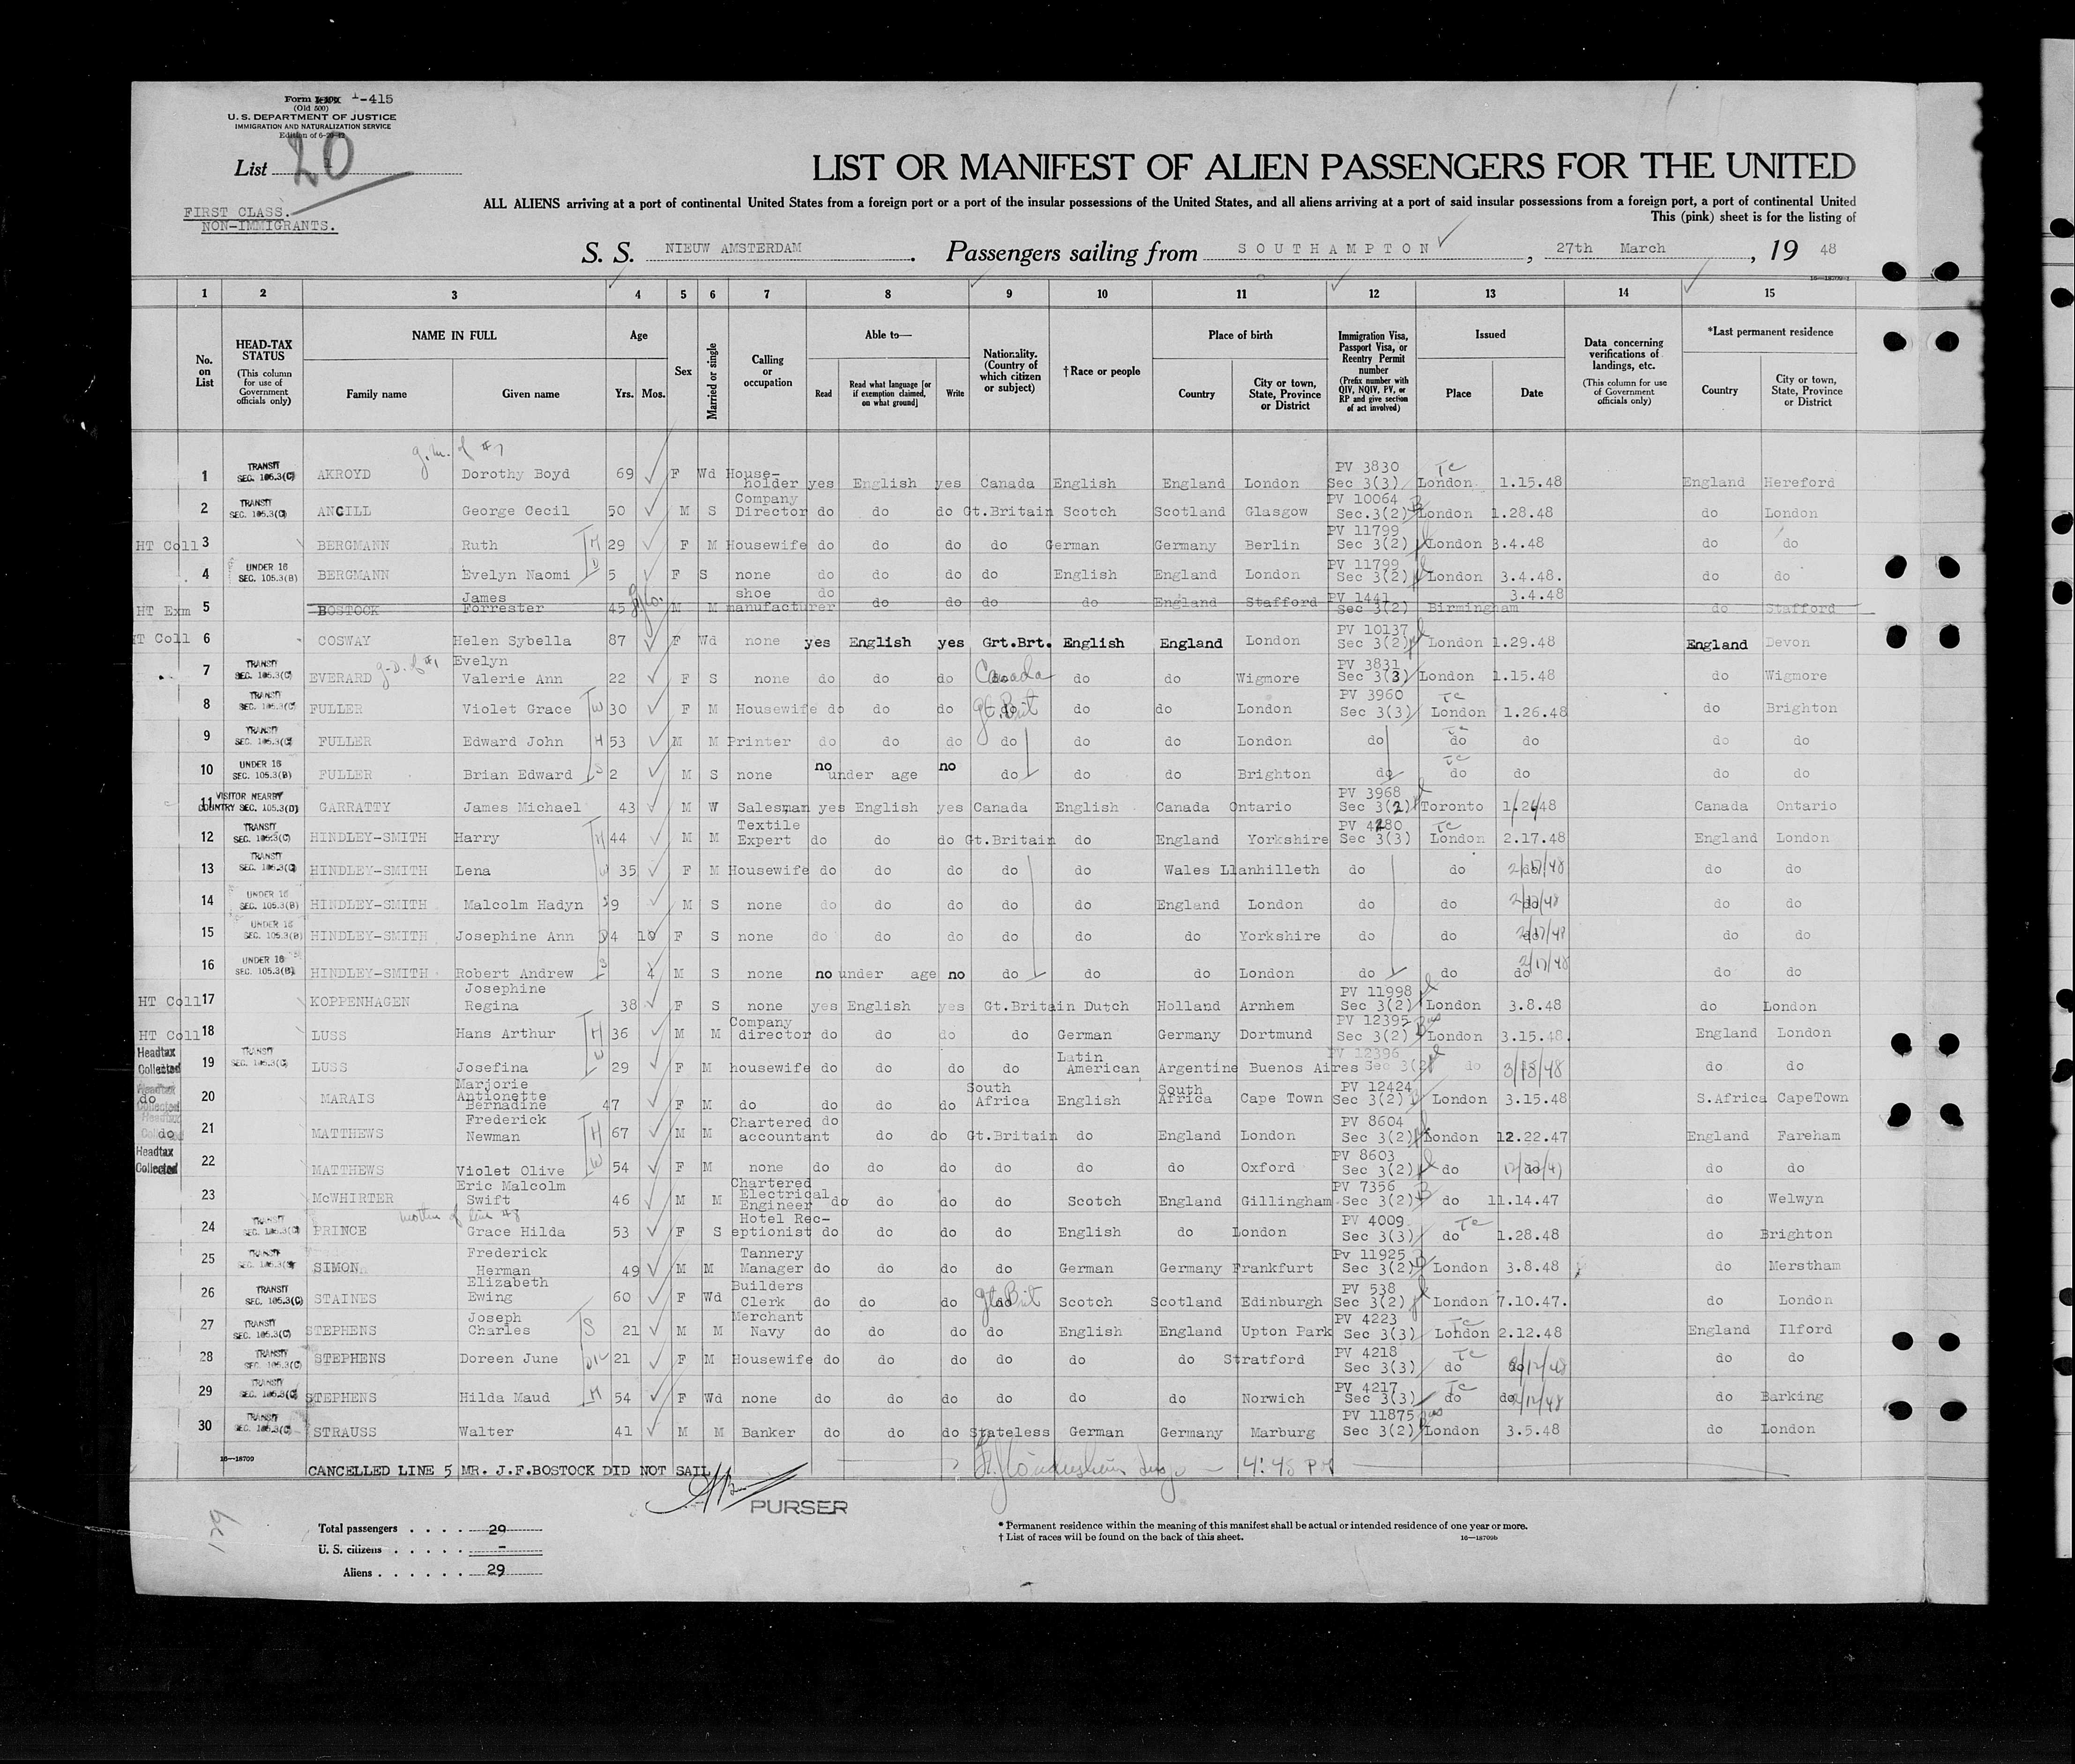 Form I-415
(Old 500)
U. S. DEPARTMENT OF JUSTICE
IMMIGRATION AND NATURALIZATION SERVICE
List 20
LIST OR MANIFEST OF ALIEN PASSENGERS FOR THE UNITED
ALL ALIENS arriving at a port of continental United States from a foreign port or a port of the insular possessions of the United States, and all aliens arriving at a port of said insular possessions from a foreign port, a port of continental United
This (pink) sheet is for the listing of
FIRST CLASS.
NON-IMMIGRANTS.
S. S. NIEUW AMSTERDAM. Passengers sailing from SOUTHAMPTON, 27th March, 19 48
1 2 3 4 5 6 7 8 9 10 11 12 13 14 15
No. on List
HEAD-TAX STATUS (This column for use of Government officials only)
NAME IN FULL Family name Given name
Age Yrs. Mos.
Sex
Married or single
Calling or occupation
Able to— Read Read what language [or if exemption claimed, on what ground] Write
Nationality. (Country of which citizen or subject)
†Race or people
Place of birth Country City or town, State, Province or District
Immigration Visa, Passport Visa, or Reentry Permit number (Prefix number with QIV, NQIV, PV, or RP and give section of act involved)
Issued Place Date
Data concerning verifications of landings, etc. (This column for use of Government officials only)
*Last permanent residence Country City or town, State, Province or District
g.m. of #7
1 TRANSIT SEC. 105.3(C) AKROYD Dorothy Boyd 69 F Wd House-holder yes English yes Canada English England London PV 3830 Sec 3(3) TC London 1.15.48 England Hereford
2 TRANSIT SEC. 105.3(C) ANCILL George Cecil 50 M S Company Director do do do Gt.Britain Scotch Scotland Glasgow PV 10064 Sec.3(2) B London 1.28.48 do London
HT Coll 3 BERGMANN Ruth H 29 F M Housewife do do do do German Germany Berlin PV 11799 Sec 3(2) London 3.4.48 do do
4 UNDER 16 SEC. 105.3(B) BERGMANN Evelyn Naomi D 5 F S none do do do do English England London PV 11799 Sec 3(2) London 3.4.48. do do
HT Exm 5 BOSTOCK James Forrester 45 M M shoe manufacturer do do do do do England Stafford PV 1441 Sec 3(2) Birmingham 3.4.48 do Stafford
HT Coll 6 COSWAY Helen Sybella 87 F Wd none yes English yes Grt.Brt. English England London PV 10137 Sec 3(2) London 1.29.48 England Devon
7 TRANSIT SEC. 105.3(C) EVERARD g-D. of #1 Evelyn Valerie Ann 22 F S none do do do Canada do do Wigmore PV 3831 Sec 3(3) London 1.15.48 do Wigmore
8 TRANSIT SEC. 105.3(C) FULLER Violet Grace W 30 F M Housewife do do do Gt.Brit do do London PV 3960 Sec 3(3) TC London 1.26.48 do Brighton
9 TRANSIT SEC. 105.3(C) FULLER Edward John H 53 M M Printer do do do do do do London do TC do do do do
10 UNDER 16 SEC. 105.3(B) FULLER Brian Edward S 2 M S none no under age no do do do Brighton do TC do do do do
11 VISITOR NEARBY COUNTRY SEC. 105.3(D) GARRATTY James Michael 43 M W Salesman yes English yes Canada English Canada Ontario PV 3968 Sec 3(2) Toronto 1/26/48 Canada Ontario
12 TRANSIT SEC. 105.3(C) HINDLEY-SMITH Harry H 44 M M Textile Expert do do do Gt.Britain do England Yorkshire PV 4280 Sec 3(3) TC London 2.17.48 England London
13 TRANSIT SEC. 105.3(C) HINDLEY-SMITH Lena W 35 F M Housewife do do do do do Wales Llanhilleth do do 2/17/48 do do
14 UNDER 16 SEC. 105.3(B) HINDLEY-SMITH Malcolm Hadyn S 9 M S none do do do do do England London do do 2/17/48 do do
15 UNDER 16 SEC. 105.3(B) HINDLEY-SMITH Josephine Ann D 4 10 F S none do do do do do do Yorkshire do do 2/17/48 do do
16 UNDER 16 SEC. 105.3(B) HINDLEY-SMITH Robert Andrew S 4 M S none no under age no do do do London do do do 2/17/48 do do
HT Coll 17 KOPPENHAGEN Josephine Regina 38 F S none yes English yes Gt.Britain Dutch Holland Arnhem PV 11998 Sec 3(2) London 3.8.48 do London
HT Coll 18 LUSS Hans Arthur H 36 M M Company director do do do do German Germany Dortmund PV 12395 Sec 3(2) London 3.15.48. England London
Headtax Collected 19 TRANSIT SEC. 105.3(C) LUSS Josefina W 29 F M housewife do do do do Latin American Argentine Buenos Aires PV 12396 Sec 3(2) do 3/15/48 do do
Headtax Collected do 20 MARAIS Marjorie Antionette Bernadine 47 F M do do do do South Africa English South Africa Cape Town PV 12424 Sec 3(2) London 3.15.48 S.Africa CapeTown
Headtax Collected do 21 MATTHEWS Frederick Newman H 67 M M Chartered accountant do do do Gt.Britain do England London PV 8604 Sec 3(2) London 12.22.47 England Fareham
Headtax Collected 22 MATTHEWS Violet Olive W 54 F M none do do do do do do Oxford PV 8603 Sec 3(2) do 12/22/47 do do
23 McWHIRTER Eric Malcolm Swift 46 M M Chartered Electrical Engineer do do do do Scotch England Gillingham PV 7356 Sec 3(2) B do 11.14.47 do Welwyn
mother of line #8
24 TRANSIT SEC. 105.3(C) PRINCE Grace Hilda 53 F S Hotel Rec-eptionist do do do do English do London PV 4009 Sec 3(3) TC do 1.28.48 do Brighton
25 TRANSIT SEC. 105.3(C) SIMON Frederick Herman 49 M M Tannery Manager do do do do German Germany Frankfurt PV 11925 Sec 3(2) B London 3.8.48 do Merstham
26 TRANSIT SEC. 105.3(C) STAINES Elizabeth Ewing 60 F Wd Builders Clerk do do do Gt Brit Scotch Scotland Edinburgh PV 538 Sec 3(2) London 7.10.47. do London
27 TRANSIT SEC. 105.3(C) STEPHENS Joseph Charles S 21 M M Merchant Navy do do do do English England Upton Park PV 4223 Sec 3(3) TC London 2.12.48 England Ilford
28 TRANSIT SEC. 105.3(C) STEPHENS Doreen June 21 F M Housewife do do do do do do Stratford PV 4218 Sec 3(3) TC do 2/12/48 do do
29 TRANSIT SEC. 105.3(C) STEPHENS Hilda Maud M 54 F Wd none do do do do do do Norwich PV 4217 Sec 3(3) TC do 2/12/48 do Barking
30 TRANSIT SEC. 105.3(C) STRAUSS Walter 41 M M Banker do do do Stateless German Germany Marburg PV 11875 Sec 3(2) London 3.5.48 do London
16—18709
CANCELLED LINE 5 MR. J.F.BOSTOCK DID NOT SAIL
4:45 PM
PURSER
129
Total passengers . . . . 29
U. S. citizens . . . . . -
Aliens . . . . . . 29
* Permanent residence within the meaning of this manifest shall be actual or intended residence of one year or more.
† List of races will be found on the back of this sheet.
16—18709b